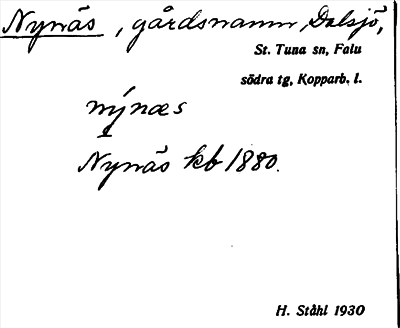 Nynäs, gårdsnamn, Dalsjö,
St. Tuna sn, Falu
södra tg, Kopparb. l.
nýnæs
Nynäs kb 1880.
H. Ståhl 1930